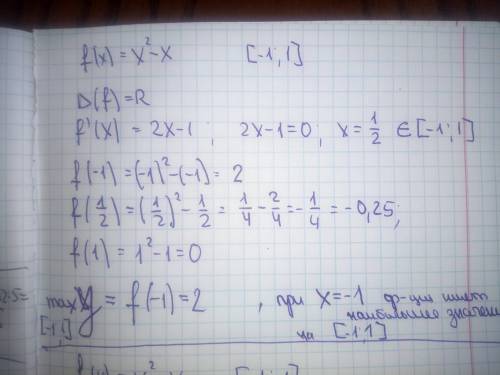 f(x) = x² - x [-1; 1]
D(f) = R
f'(x) = 2x - 1 ; 2x - 1 = 0 ; x = 1/2 ∈ [-1; 1]
f(-1) = (-1)² - (-1) = 2
f(1/2) = (1/2)² - 1/2 = 1/4 - 2/4 = - 1/4 = -0,25;
f(1) = 1² - 1 = 0
max y = f(-1) = 2 , при x = -1 ф-ция имеет
[-1;1] наибольшее значение
на [-1;1]